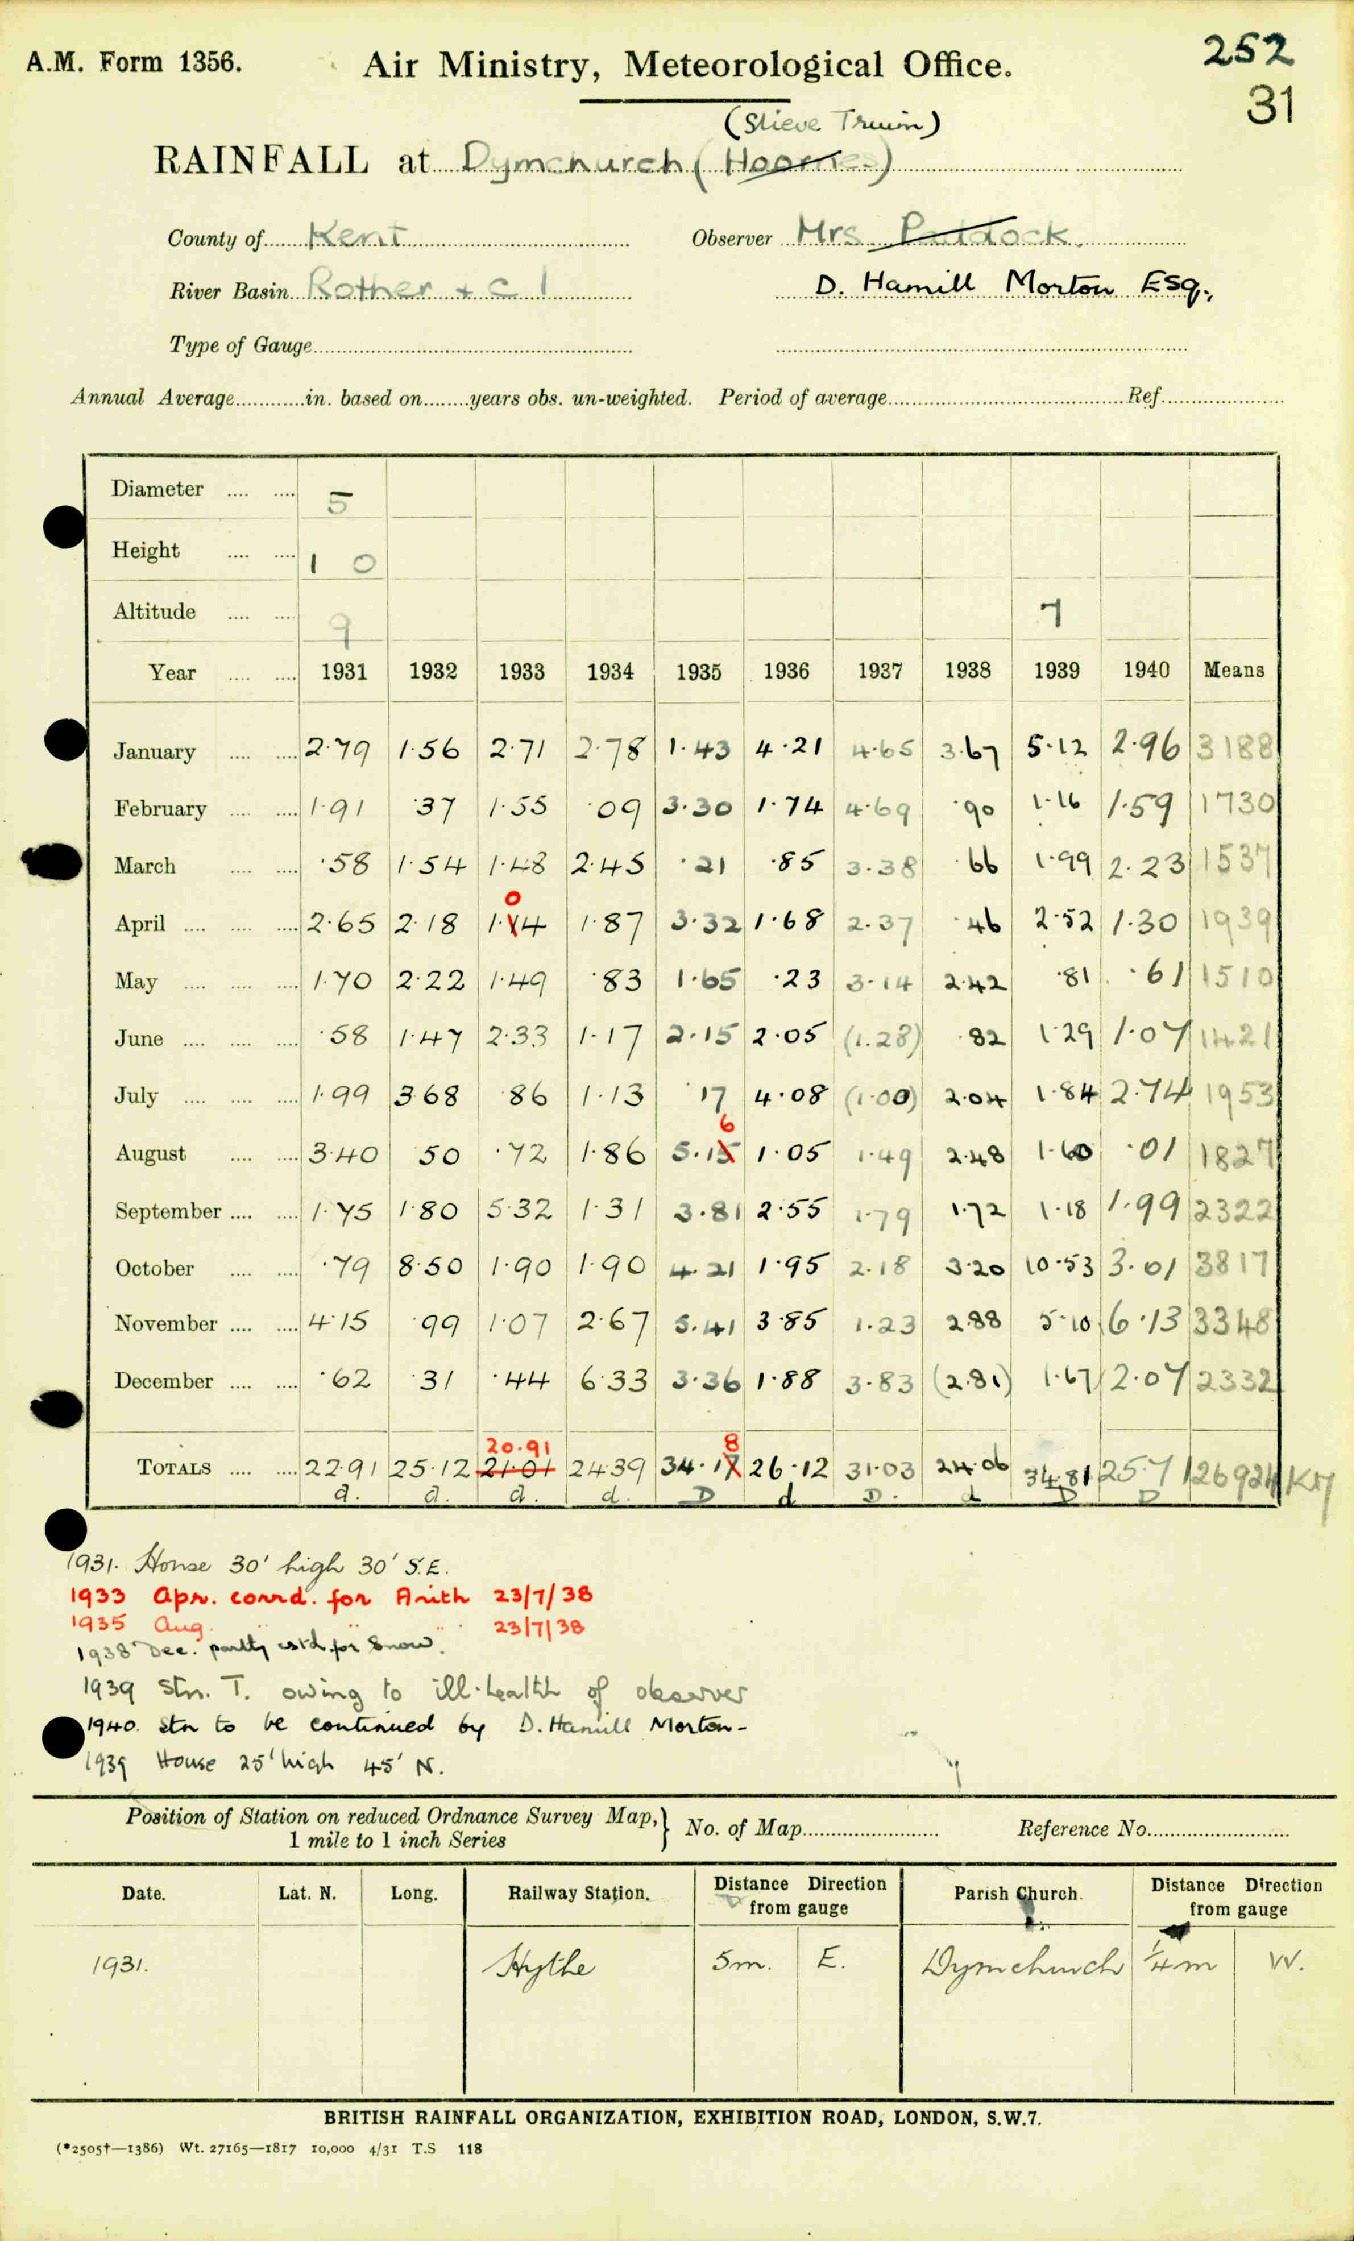 A.M. Form 1356. Air Ministry, Meteorological Office. 252
31
(Slieve Truin)
RAINFALL at Dymchurch (Hoomes)
County of Kent Observer Mrs Paddock.
River Basin Rother + c 1 D. Hamill Morton Esq.,
Type of Gauge
Annual Average in. based on years obs. un-weighted. Period of average Ref.
Diameter 5
Height 1 0
Altitude 9 7
Year 1931 1932 1933 1934 1935 1936 1937 1938 1939 1940 Means
January 2.79 1.56 2.71 2.78 1.43 4.21 4.65 3.67 5.12 2.96 3188
February 1.91 .37 1.55 .09 3.30 1.74 4.69 .90 1.16 1.59 1730
March .58 1.54 1.48 2.45 .21 .85 3.38 .66 1.99 2.23 1537
0
April 2.65 2.18 1.14 1.87 3.32 1.68 2.37 .46 2.52 1.30 1939
May 1.70 2.22 1.49 .83 1.65 .23 3.14 2.42 .81 .61 1510
June .58 1.47 2.33 1.17 2.15 2.05 (1.28) .82 1.29 1.07 1421
July 1.99 3.68 .86 1.13 .17 4.08 (1.00) 2.04 1.84 2.74 1953
6
August 3.40 .50 .72 1.86 5.15 1.05 1.49 2.48 1.60 .01 1827
September 1.75 1.80 5.32 1.31 3.81 2.55 1.79 1.72 1.18 1.99 2322
October .79 8.50 1.90 1.90 4.21 1.95 2.18 3.20 10.53 3.01 3817
November 4.15 .99 1.07 2.67 5.41 3.85 1.23 2.88 5.10 6.13 3348
December .62 .31 .44 6.33 3.36 1.88 3.83 (2.81) 1.67 2.07 2332
20.91 8
TOTALS 22.91 25.12 21.01 24.39 34.17 26.12 31.03 24.06 34.81 25.71 26924 KM
d. d. d. d. D d D. d D D
1931. House 30' high 30' S.E.
1933 Apr. corrd. for Arith 23/7/38
1935 Aug. " " " 23/7/38
1938 Dec. partly estd. for Snow.
1939 Stn. T. owing to ill-health of observer
1940. Stn to be continued by D. Hamill Morton-
1939 House 25' high 45' N.
Position of Station on reduced Ordnance Survey Map,} No. of Map Reference No.
1 mile to 1 inch Series
Date. Lat. N. Long. Railway Station. Distance Direction from gauge Parish Church. Distance Direction from gauge
1931. Hythe 5m. E. Dymchurch 1/4 m W.
BRITISH RAINFALL ORGANIZATION, EXHIBITION ROAD, LONDON, S.W.7.
(*2505†—1386) Wt. 27165—1817 10,000 4/31 T.S 118